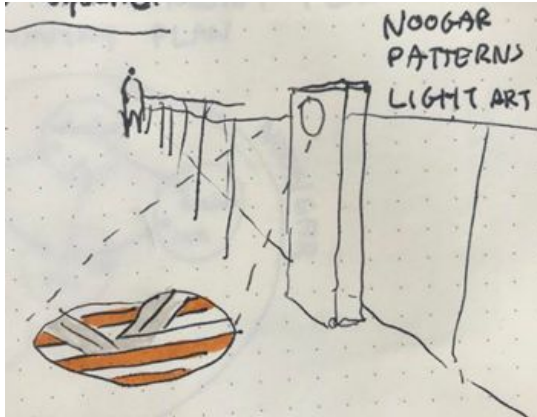 NOOGAR
PATTERNS
LIGHT ART